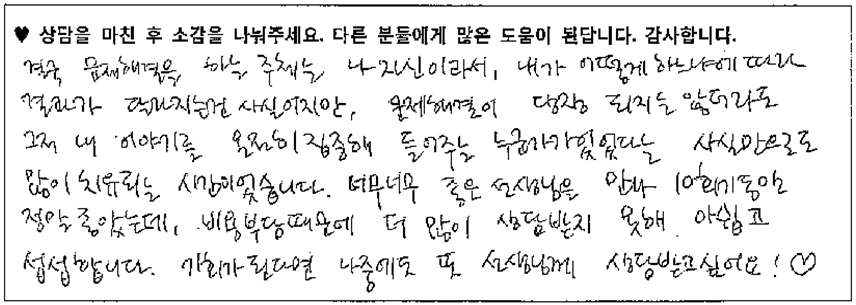 ♥ 상담을 마친 후 소감을 나눠주세요. 다른 분들에게 많은 도움이 된답니다. 감사합니다.
결국 문제해결을 하는 주체는 나 자신이라서, 내가 어떻게 하느냐에 따라
결과가 달라지는건 사실이지만, 문제해결이 당장 되지는 않더라도
그저 내 이야기를 온전히 집중해 들어주는 누군가가 있었다는 사실만으로도
많이 치유되는 시간이었습니다. 너무너무 좋은 선생님을 만나 10회기동안
정말 좋았는데, 비용부담때문에 더 많이 상담받지 못해 아쉽고
섭섭합니다. 기회가 된다면 나중에도 또 선생님께 상담받고싶어요! ♡